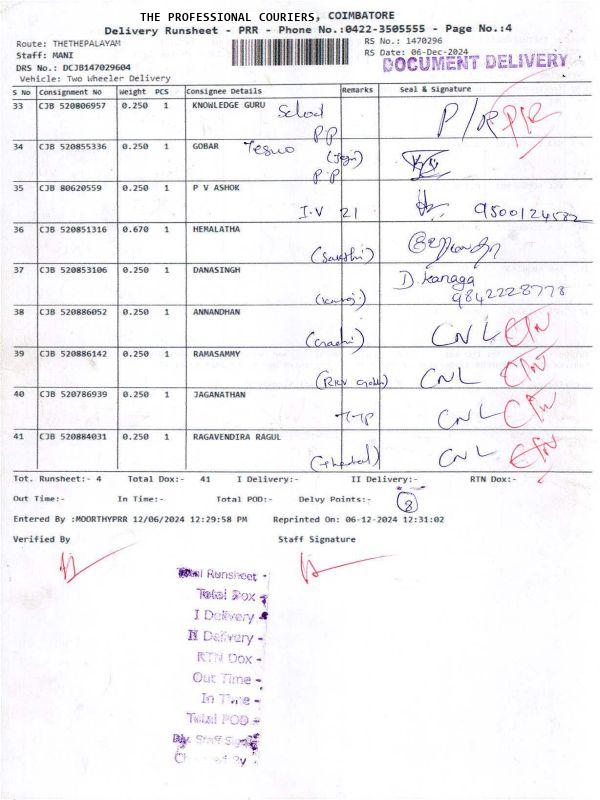 THE PROFESSIONAL COURIERS, COIMBATORE
Delivery Runsheet - PRR - Phone No.:0422-3505555 - Page No.:4
Route: THETHEPALAYAM
RS No.: 1470296
Staff: MANI
RS Date: 06-Dec-2024
DRS No.: DCJB147029604
DOCUMENT DELIVERY
Vehicle: Two Wheeler Delivery
S No Consignment No Weight PCS Consignee Details Remarks Seal & Signature
33 CJB 520806957 0.250 1 KNOWLEDGE GURU P/R P/R
P.P
34 CJB 520855336 0.250 1 GOBAR
P.P
35 CJB 80620559 0.250 1 P V ASHOK
I.V 21 9500124582
36 CJB 520851316 0.670 1 HEMALATHA
37 CJB 520853106 0.250 1 DANASINGH D. Kanaga
9842228778
38 CJB 520886052 0.250 1 ANNANDHAN CNL
39 CJB 520886142 0.250 1 RAMASAMMY CNL
40 CJB 520786939 0.250 1 JAGANATHAN CNL
41 CJB 520884031 0.250 1 RAGAVENDIRA RAGUL CNL
Tot. Runsheet:- 4 Total Dox:- 41 I Delivery:- II Delivery:- RTN Dox:-
Out Time:- In Time:- Total POD:- Delvy Points:- 8
Entered By :MOORTHYPRR 12/06/2024 12:29:58 PM Reprinted On: 06-12-2024 12:31:02
Verified By Staff Signature
Total Runsheet -
Total Dox -
I Delivery -
II Delivery -
RTN Dox -
Out Time -
In Time -
Total POD -